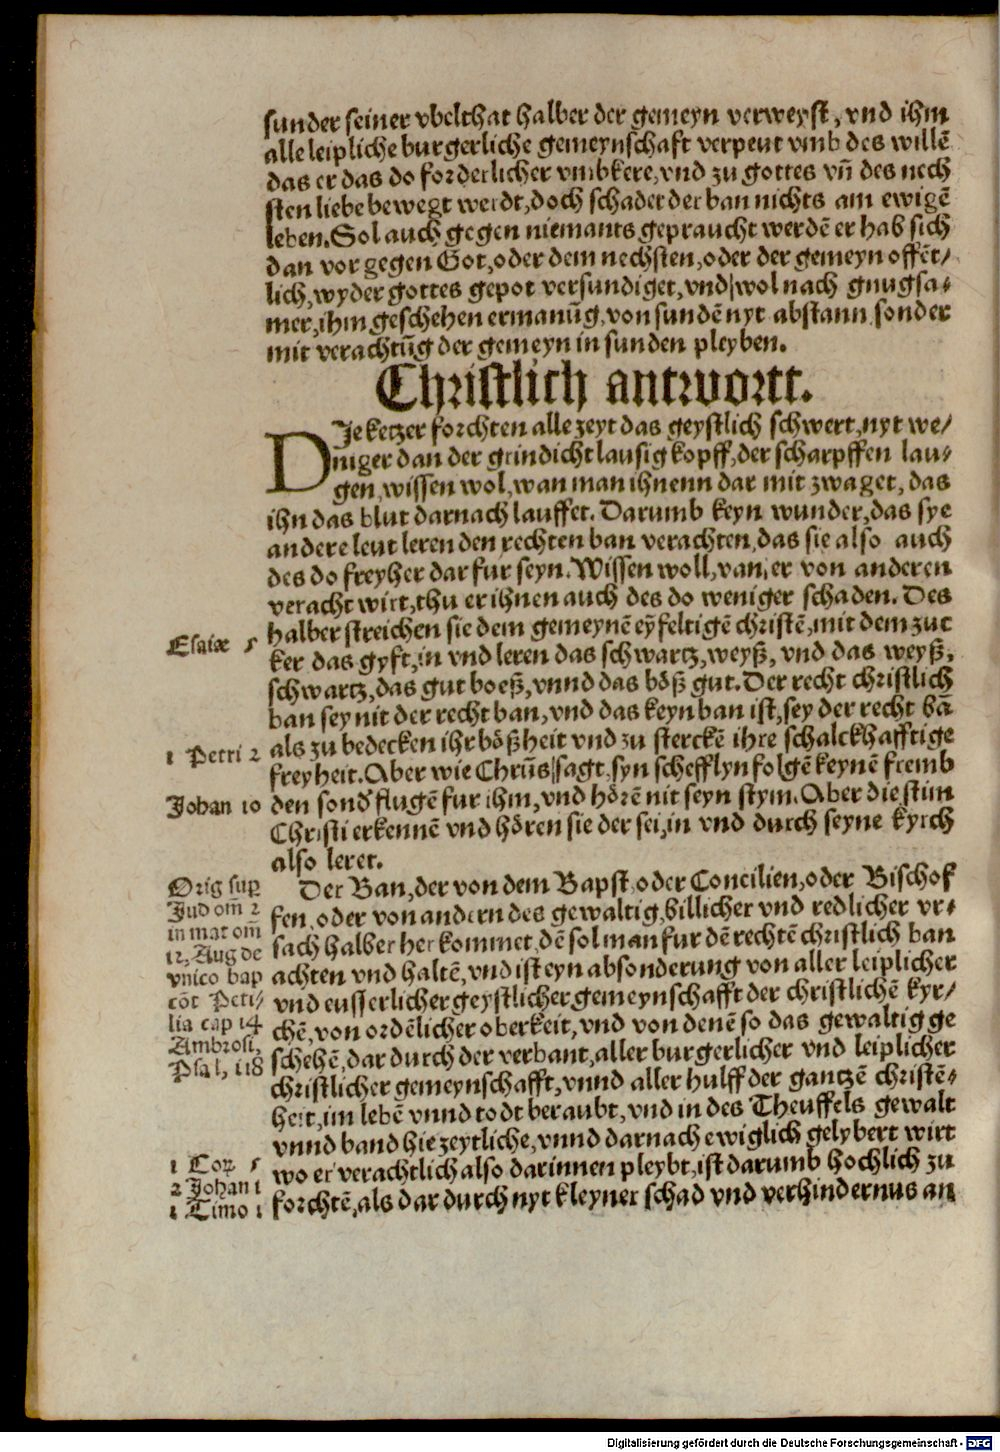 sunder seiner vbelthat halber der gemeyn verweyst, vnd ihm
alle leipliche burgerliche gemeynschaft verpeut vmb des willē
das er das do forderlicher vmbkere, vnd zu gottes vñ des nech
sten liebe bewegt werdt, doch schadet der ban nichts am ewigē
leben. Sol auch gegen niemants gepraucht werdē er hab sich
dan vor gegen Got, oder dem nechsten, oder der gemeyn offēt/
lich, wyder gottes gepot versundiget, vnd wol nach gnugsa-
mer, ihm geschehen ermanūg, von sundē nyt abstann sonder
mit verachtūg der gemeyn in sunden pleyben.
Christlich antwortt.
DJe ketzer forchten alle zeyt das geystlich schwert, nyt we/
niger dan der grindicht lausig kopff, der scharpffen lau-
gen, wissen wol, wan man ihnenn dar mit zwaget, das
ihn das blut darnach lauffet. Darumb keyn wunder, das sye
andere leut leren den rechten ban verachten, das sie also auch
des do freyher dar fur seyn. Wissen woll, van, er von anderen
veracht wirt, thu er ihnen auch des do weniger schaden. Des
halber streichen sie dem gemeynē eyfeltigē christē, mit dem zuc
Esaiæ 5
ker das gyft, in vnd leren das schwartz, weyß, vnd das weyß,
schwartz, das gut boeß, vnnd das böß gut. Der recht christlich
ban sey nit der recht ban, vnd das keyn ban ist, sey der recht bā
1 Petri 2
als zu bedecken ihr bößheit vnd zu sterckē ihre schalckhafftige
freyheit. Aber wie Chrūs sagt, syn schefflyn folgē keynē fremb
Johan 10
den sond' flugē fur ihm, vnd hörē nit seyn stym. Aber die stim
Christi erkennē vnd hören sie der sei, in vnd durch seyne kyrch
also leret.
Orig sup
Jud om̄ 2
in mat om
12, Aug de
vnico bap
cōt Peti/
lia cap 14
Ambrosi,
Psal, 118
Der Ban, der von dem Bapst, oder Concilien, oder Bischof
fen, oder von andern des gewaltig, billicher vnd redlicher vr-
sach halber her kommet, dē sol man fur dē rechtē christlich ban
achten vnd haltē, vnd ist eyn absonderung von aller leiplicher
vnd eusserlicher geystlicher gemeynschafft der christlichē kyr/
chē, von ordēlicher oberkeit, vnd von denē so das gewaltig ge
schehē, dar durch der verbant, aller burgerlicher vnd leiplicher
christlicher gemeynschafft, vnnd aller hulff der gantzē christē-
heit, im lebē vnnd todt beraubt, vnd in des Theuffels gewalt
vnnd band hie zeytliche, vnnd darnach ewiglich gelybert wirt
1 Cor 5
2 Johan 1
1 Timo 1
wo er verachtlich also darinnen pleybt, ist darumb hochlich zu
forchtē, als dar durch nyt kleyner schad vnd verhindernus an
Digitalisierung gefördert durch die Deutsche Forschungsgemeinschaft - DFG